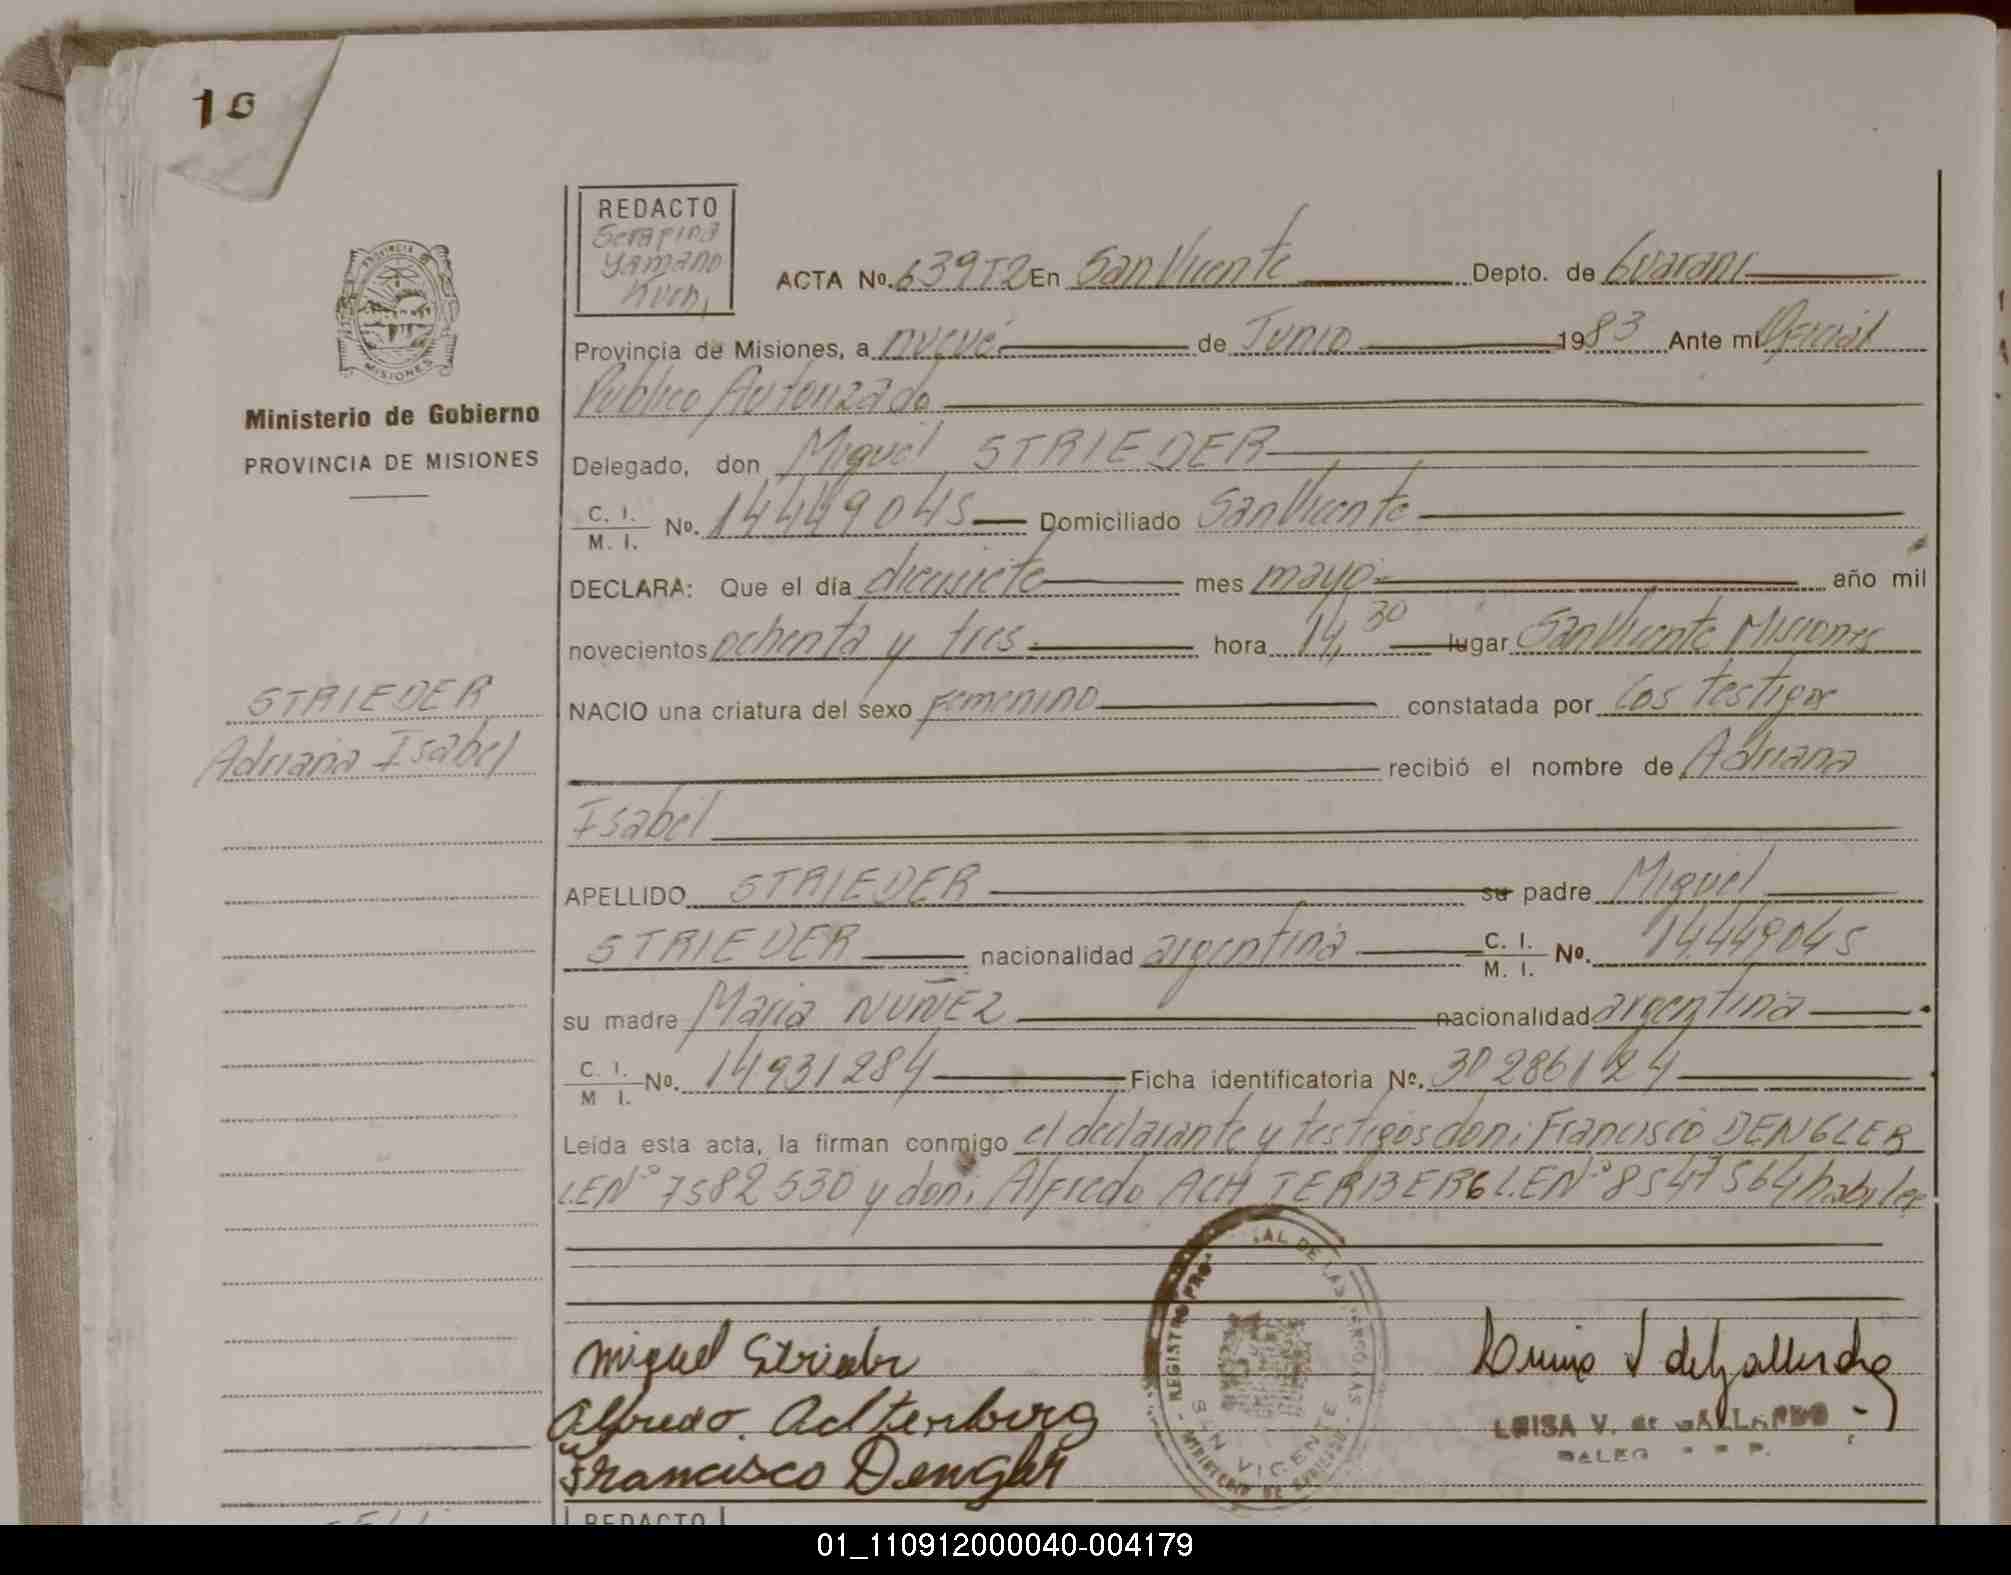 10
REDACTO
Serapina
Yamano
Kuch,
ACTA Nº. 639T2 En San Vicente Depto. de Guarani
Provincia de Misiones, a nueve de Junio 1983 Ante mi Oficial
Publico Autorizado
Ministerio de Gobierno
PROVINCIA DE MISIONES
Delegado, don Miguel STRIEDER
C. I. / M. I. Nº. 14449045 Domiciliado San Vicente
DECLARA: Que el día diecisiete mes mayo año mil
novecientos ochenta y tres hora 14,30 lugar San Vicente Misiones
STRIEDER
Adriana Isabel
NACIO una criatura del sexo femenino constatada por los testigos
recibió el nombre de Adriana
Isabel
APELLIDO STRIEDER su padre Miguel
STRIEDER nacionalidad argentina C. I. / M. I. Nº. 14.449045
su madre Maria NUÑEZ nacionalidad argentina
C. I. / M I. Nº. 14931284 Ficha identificatoria Nº. 30286124
Leída esta acta, la firman conmigo el declarante y testigos don: Francisco DENGLER
L.E Nº 7582530 y don: Alfredo ACHTERBERG L.E Nº 8547564 habiles
Miguel Strieder
Alfredo. Achterberg
Francisco Dengler
REGISTRO PRO AL DE LAS PERSONAS
SAN VICENTE
MINISTERIO DE GOBIERNO
LUISA V. de GALLARDO
REDACTO
01_110912000040-004179